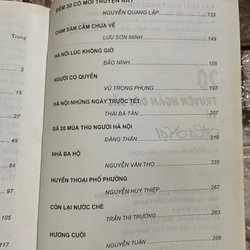 ĐÊM 30 CÓ MỖI TRUYỆN NÀY
NGUYỄN QUANG LẬP 135
CHIM SÂM CẦM CHƯA VỀ
LƯU SƠN MINH 149
HÀ NỘI LÚC KHÔNG GIỜ
BẢO NINH 158
NGƯỜI CÓ QUYỀN
VŨ TRỌNG PHỤNG 187
HÀ NỘI NHỮNG NGÀY TRƯỚC TẾT
THÁI BÁ TÂN 197
GÃ 20 MÙA THU NGƯỜI HÀ NỘI
ĐẶNG THÂN 219
NHÀ BA HỘ
NGUYỄN VĂN THỌ 232
HUYỀN THOẠI PHỐ PHƯỜNG
NGUYỄN HUY THIỆP 239
CÒN LẠI NƯỚC CHÈ
TRẦN THỊ TRƯỜNG 254
HƯƠNG CUỘI
NGUYỄN TUÂN 268
Trang
5
33
57
65
92
117